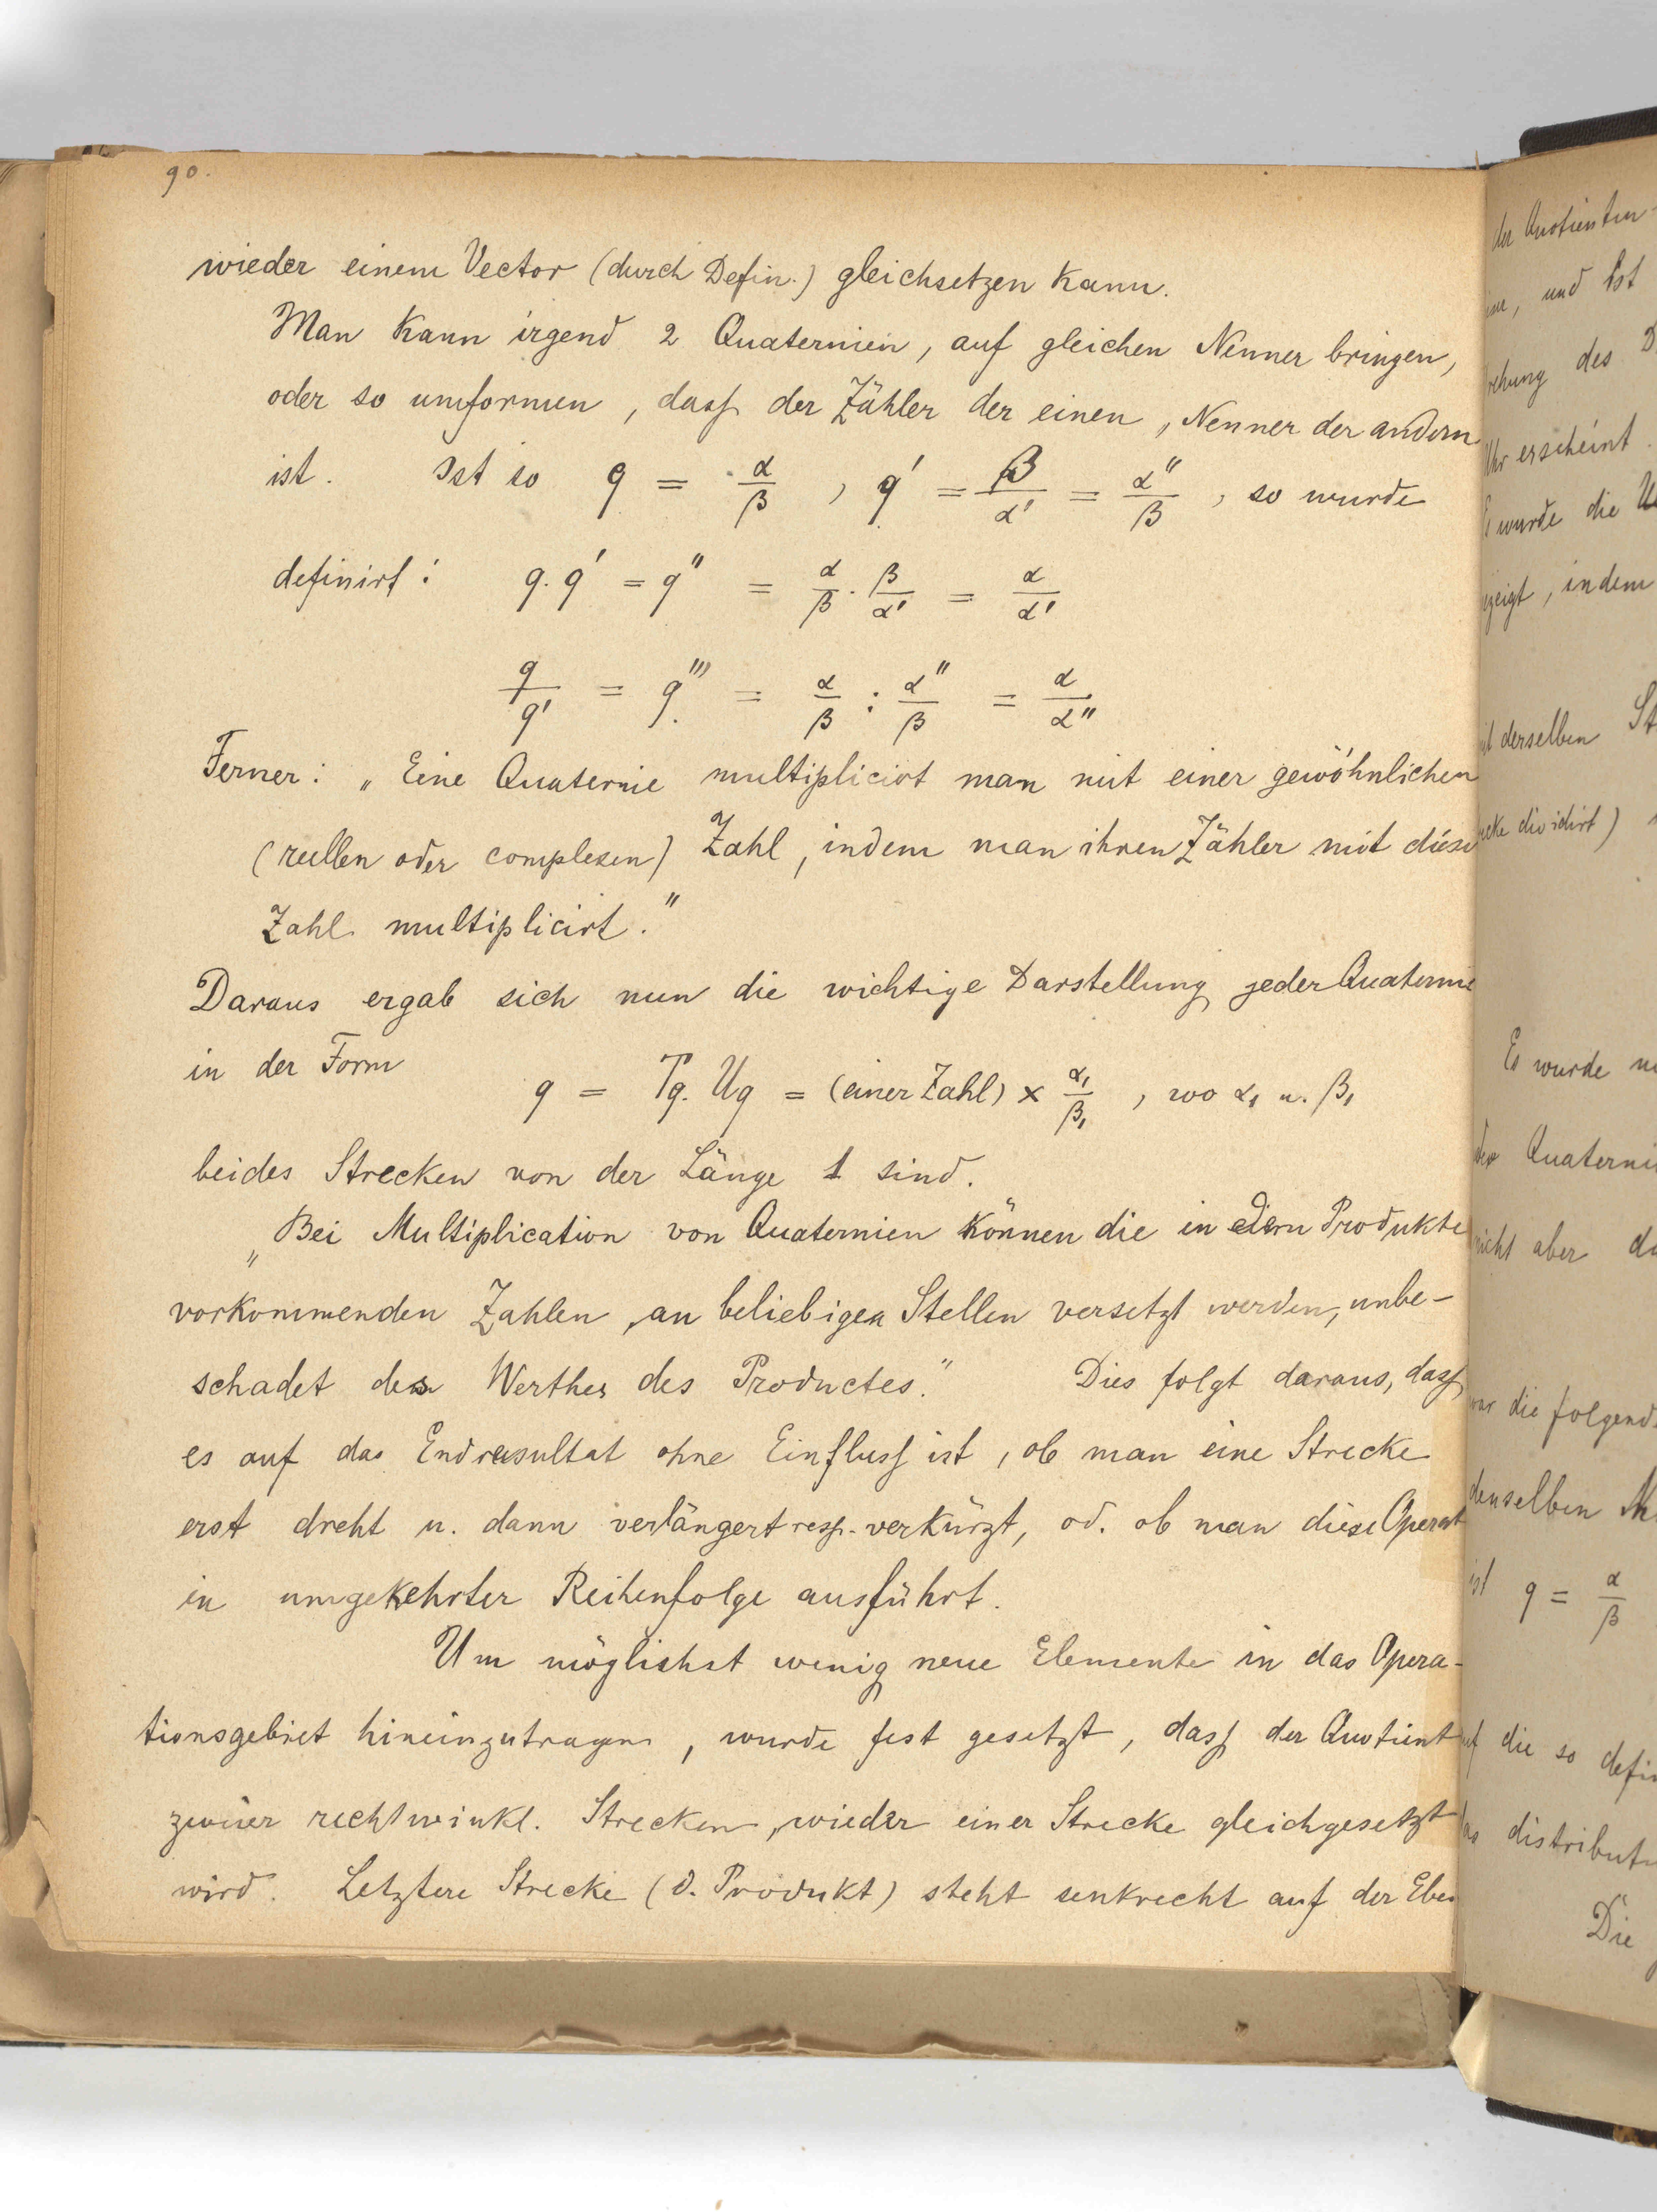 90.
wieder einem Vector (durch Defin.) gleichsetzen kann.
Man kann irgend 2 Quaternien, auf gleichen Nenner bringen,
oder so umformen, dass der Zähler der einen, Nenner der andern
ist. Ist so q = α/β , q' = β/α' = α''/β , so wurde
definirt: q. q' = q'' = α/β · β/α' = α/α'
q/q' = q''' = α/β : α''/β = α/α''
Ferner: „Eine Quaternie multiplicirt man mit einer gewöhnlichen
(reellen oder complexen) Zahl, indem man ihren Zähler mit dieser
Zahl multiplicirt."
Daraus ergab sich nun die wichtige Darstellung jeder Quaternie
in der Form
q = Tq. Uq = (einer Zahl) × α₁/β₁ , wo α₁ u. β₁
beides Strecken von der Länge 1 sind.
„Bei Multiplication von Quaternien können die in Produkte
vorkommenden Zahlen, an beliebigen Stellen versetzt werden, unbe-
schadet des Werthes des Productes." Dies folgt daraus, dass
es auf das Endresultat ohne Einfluss ist, ob man eine Strecke
erst dreht u. dann verlängert resp. verkürzt, od. ob man diese Operat
in umgekehrter Reihenfolge ausführt.
Um möglichst wenig neue Elemente in das Opera-
tionsgebiet hineinzutragen, wurde fest gesetzt, dass der Quotient
zweier rechtwinkl. Strecken, wieder einer Strecke gleichgesetzt
wird. Letztere Strecke (d. Produkt) steht senkrecht auf der Eben
der Quotienten-
und ist
des D
Uhr erscheint.
wurde die
zeigt, indem
derselben St
dividirt)
Es wurde
Quaterni
nicht aber
die folgend
denselben
ist q = α/β
die so defin
distributi
Die